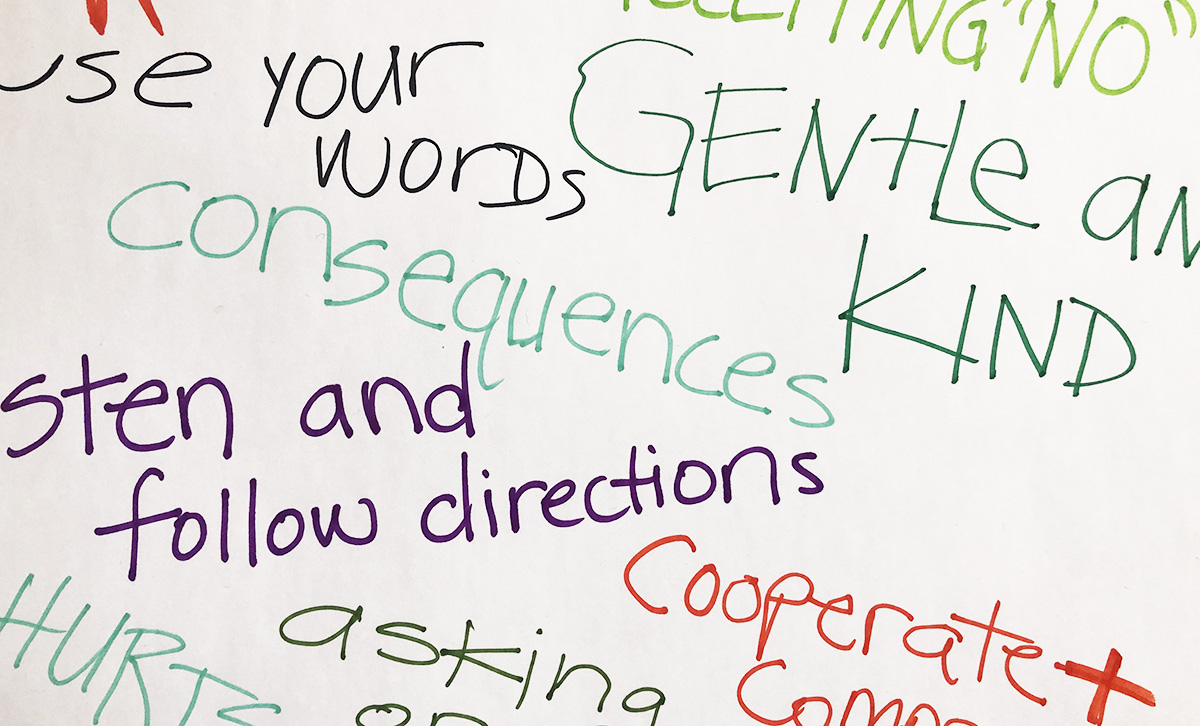 ACCEPTING "NO"
use your
words
GENTLE an
KIND
consequences
sten and
follow directions
HURTS
asking
Cooperate +
Comp